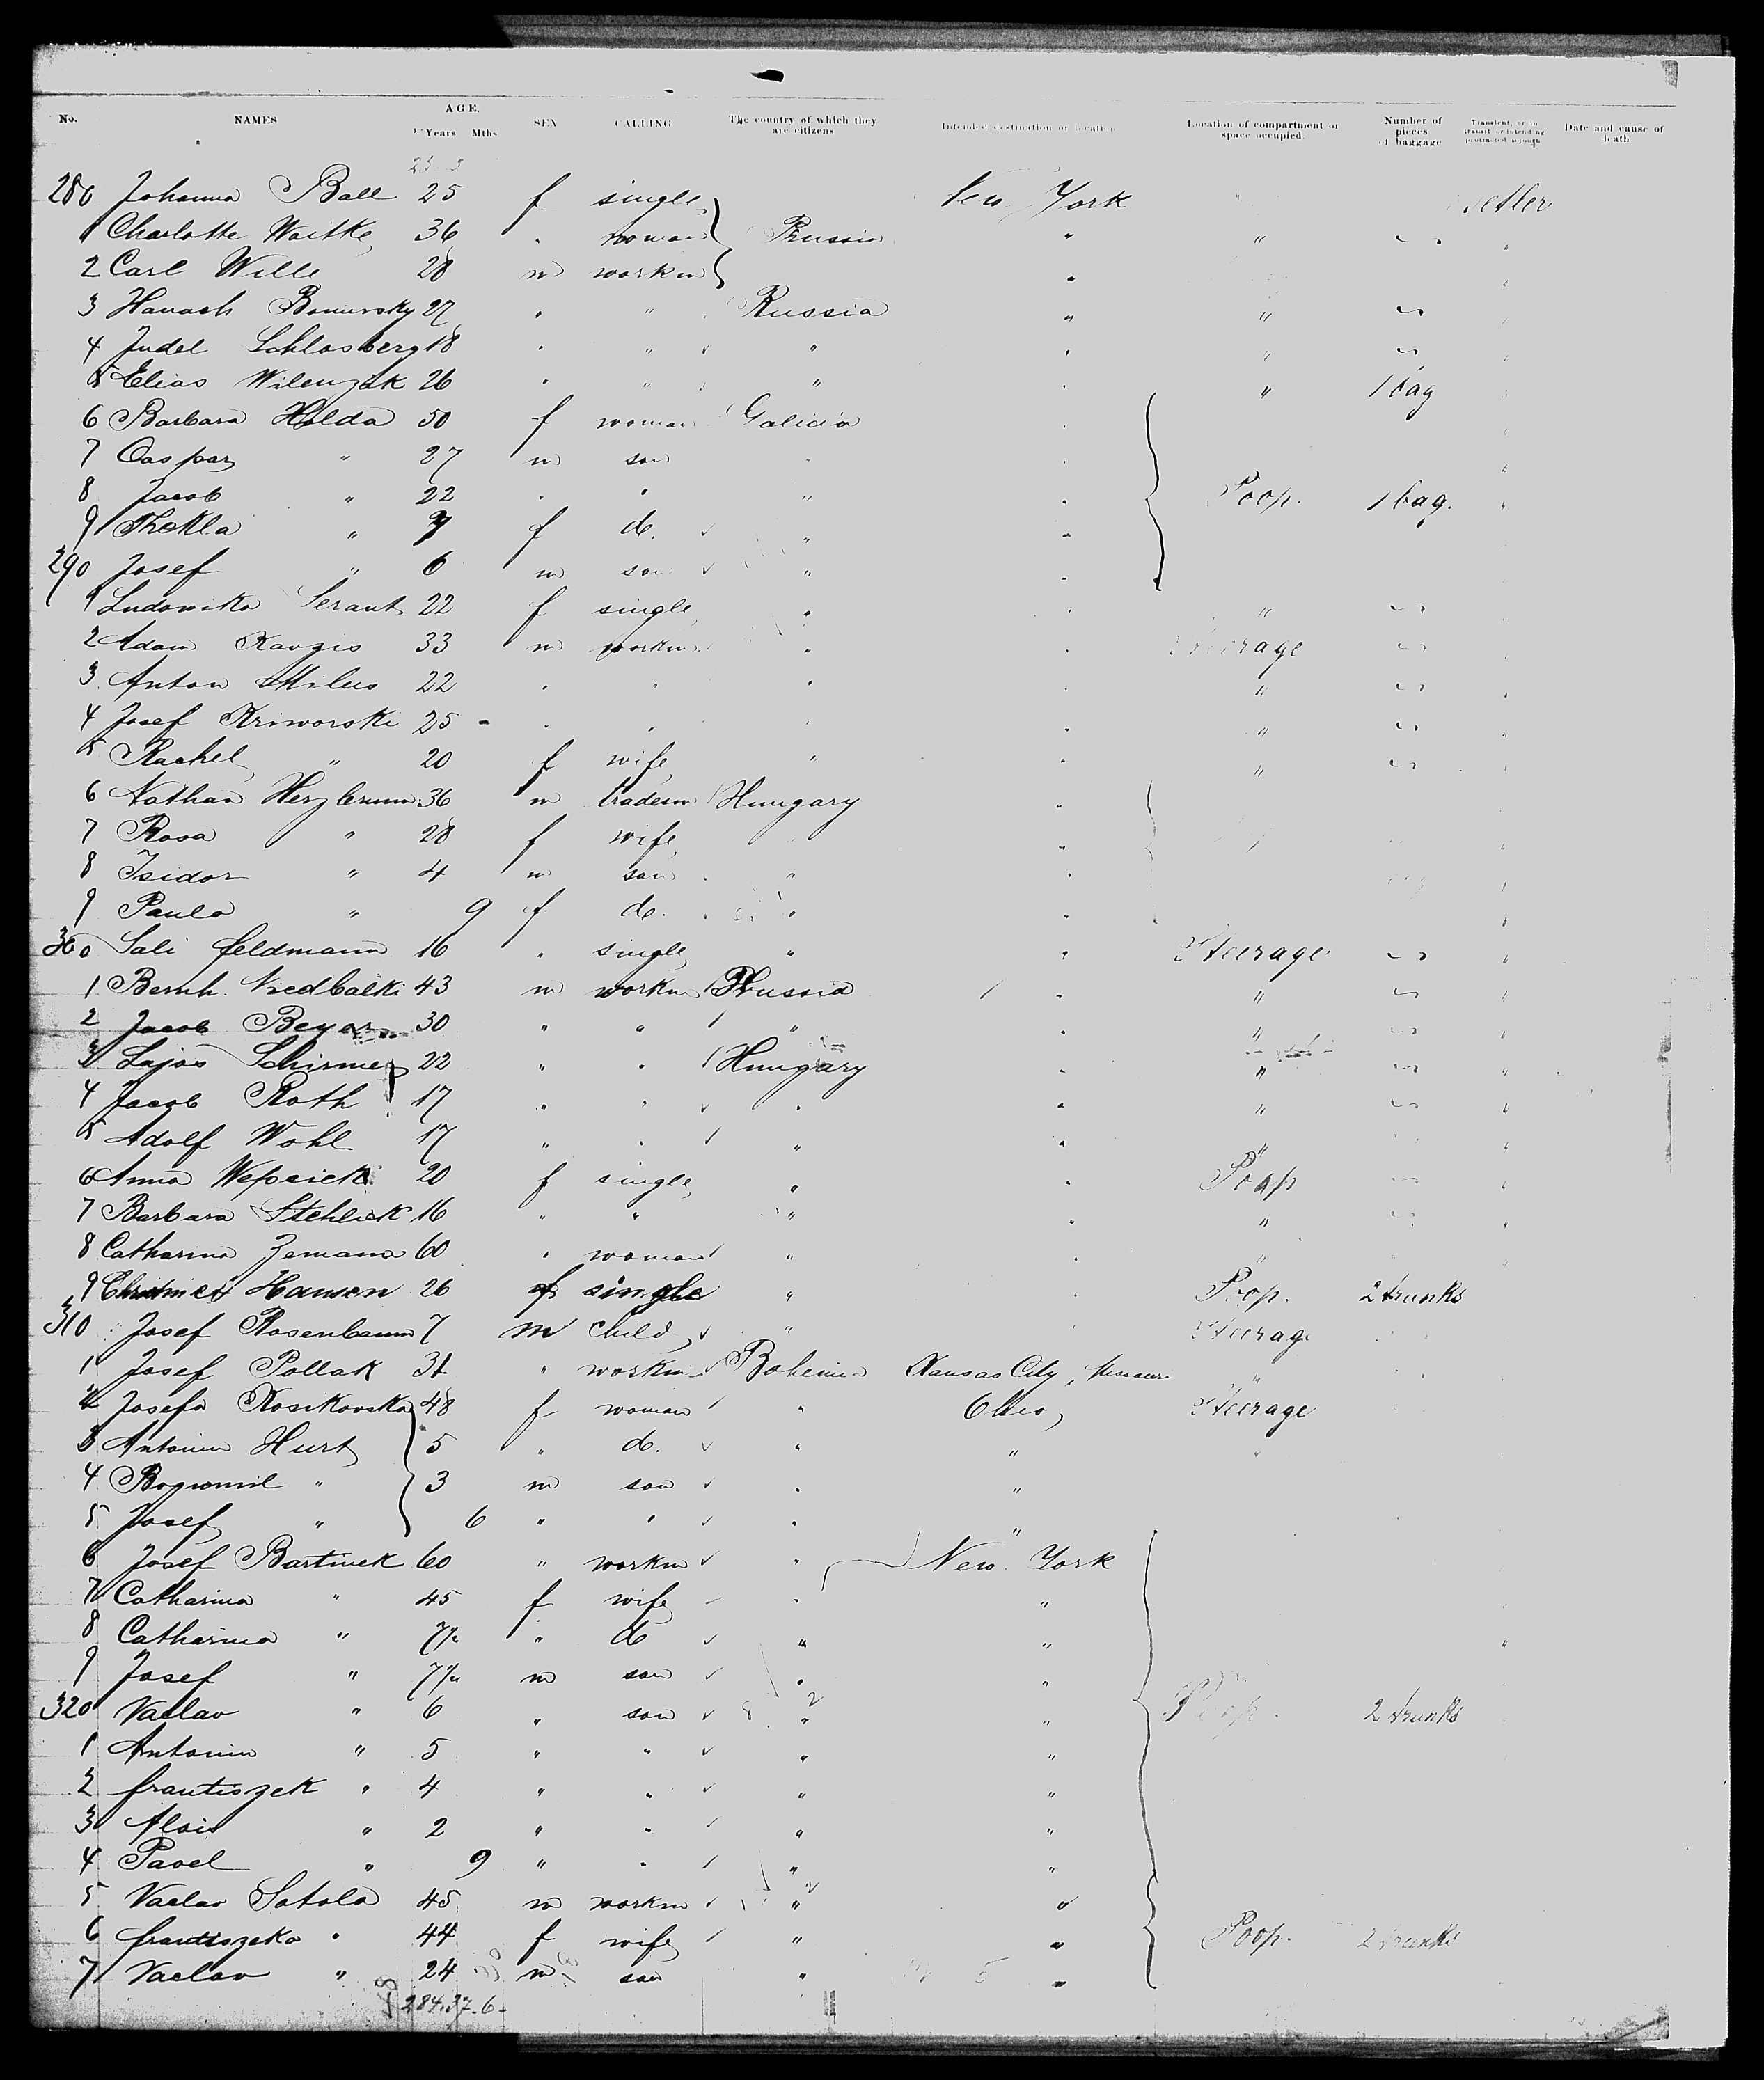 No. NAMES AGE. Years Mths SEX CALLING The country of which they are citizens Intended destination or location Location of compartment or space occupied Number of pieces of baggage Transient, or in transit, or intending protracted sojourn Date and cause of death
280 Johanna Ball 25 f single New York Setler
1 Charlotte Waitke 36 " woman } Prussia " " "
2 Carl Wille 28 m workm "
3 Hanach 27 " " Russia " " "
4 Judel Schlosberg 18 " " " " " "
5 Elias Wilenzik 26 " " " " " 1 bag
6 Barbara Holda 50 f woman Galicia "
7 Caspar " 27 m son " "
8 Jacob " 22 " " " " Poop. 1 bag. "
9 Thekla " 7 f do. " "
290 Josef " 6 m son " "
1 Ludowika Serant 22 f single " " " "
2 Adam 33 m workm " " Steerage "
3 Anton Milus 22 " " " " " "
4 Josef Kriworski 25 - " " " " " "
5 Rachel " 20 f wife " " " "
6 Nathan 36 m tradesm Hungary "
7 Rosa " 28 f wife " "
8 Isidor " 4 m son " "
9 Paula " 9 f do. " "
300 Sali Feldmann 16 " single " " Steerage "
1 Bernh. Niedbalki 43 m workm Prussia " " "
2 Jacob Beyer 30 " " " " " "
3 Lajos Schirmer 22 " " Hungary " " "
4 Jacob Roth 17 " " " " " "
5 Adolf Wohl 17 " " " " "
6 Anna 20 f single " " Poop "
7 Barbara Stehlick 16 " " " " " "
8 Catharina Zemana 60 " woman " " "
9 Hansen 26 f single " " Poop. 2 trunks
310 Josef Rosenbaum 7 m child " " Steerage
1 Josef Pollak 31 " workm Bohemia Kansas City, Missouri "
2 Josefa Kosikovska 48 f woman " Ohio, Steerage
3 Antonin Hurt 5 " do. " "
4 Bogumil " 3 m son " "
5 Josef " 6 " " " "
6 Josef Bartinek 60 " workm " New York
7 Catharina " 45 f wife " "
8 Catharina " 7½ " do " "
9 Josef " 7½ m son " "
320 Vaclav " 6 " son " " Poop. 2 trunks
1 Antonin " 5 " " " "
2 Frantiszek " 4 " " " "
3 Alois " 2 " " " "
4 Pavel " 9 " " " "
5 Vaclav Sotola 45 m workm " "
6 Frantiszeka " 44 f wife " " Poop. 2 trunks
7 Vaclav " 24 m son " "
284.37.6.